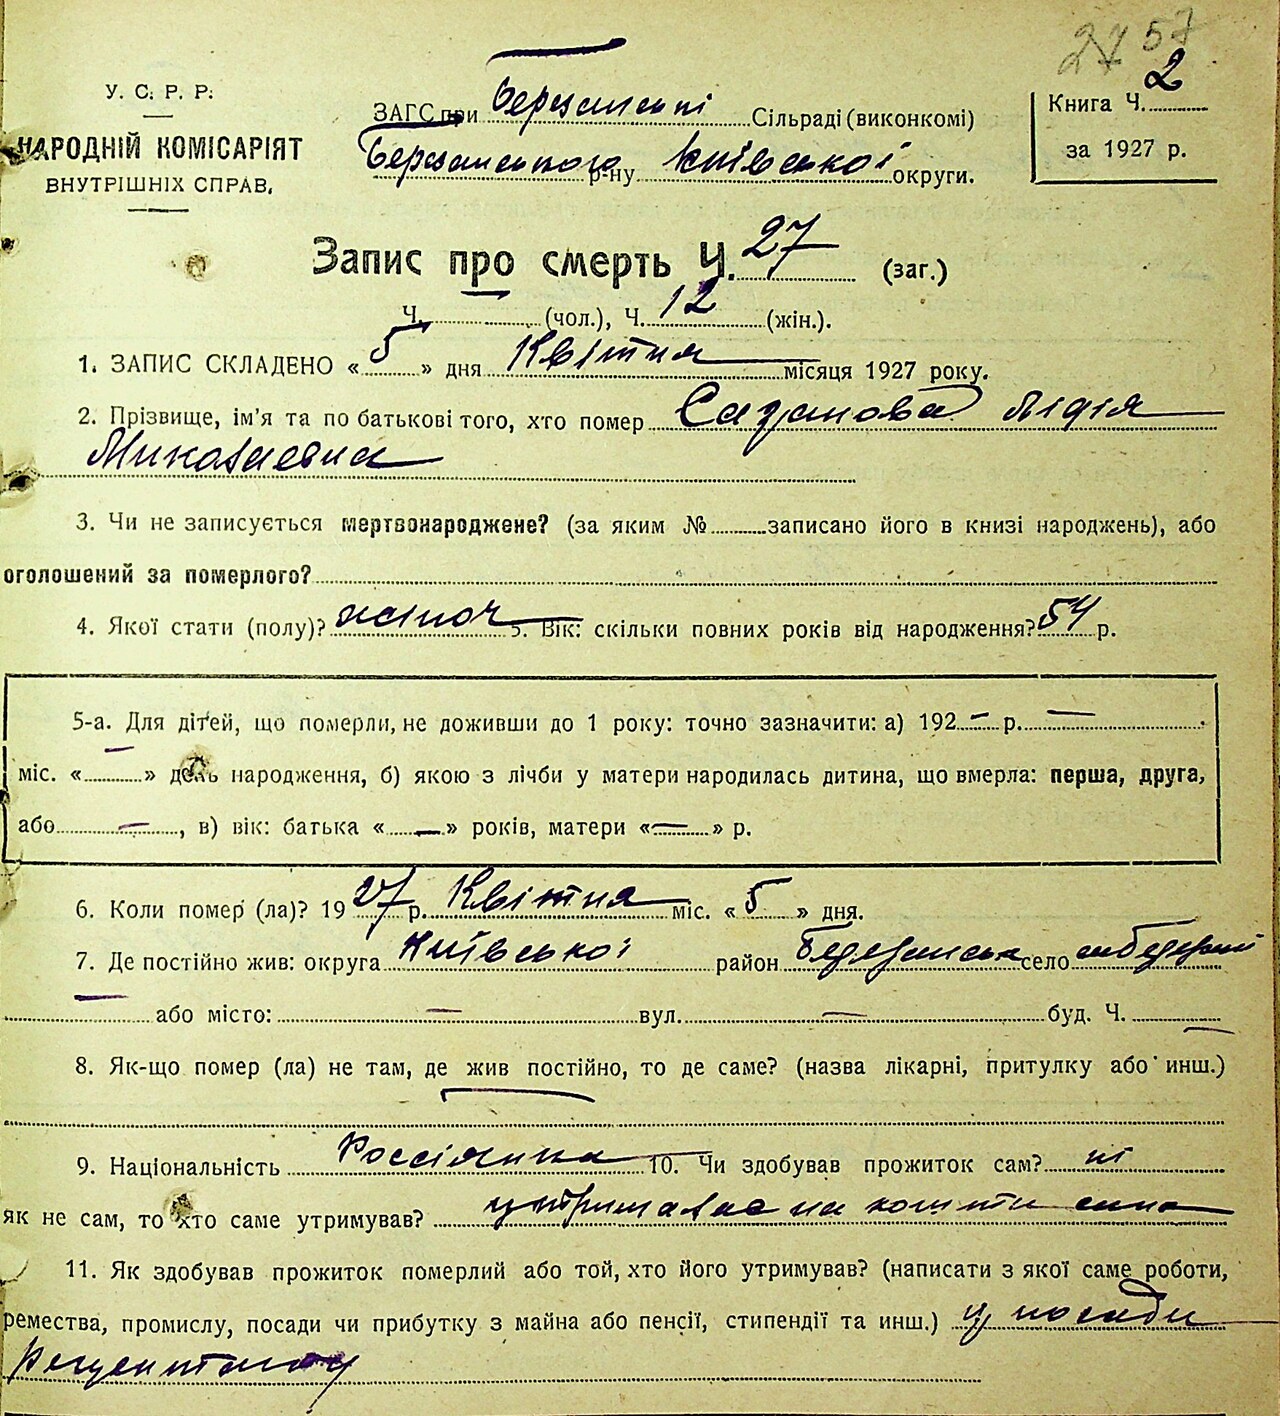 2757
У. С. Р. Р.
НАРОДНІЙ КОМІСАРІЯТ
ВНУТРІШНІХ СПРАВ.
ЗАГС при Березанській Сільраді (виконкомі)
Березанського р-ну Київської округи.
Книга Ч. 2
за 1927 р.
Запис про смерть Ч. 27 (заг.)
Ч. (чол.), Ч. 12 (жін.).
1. ЗАПИС СКЛАДЕНО « 5 » дня Квітня місяця 1927 року.
2. Прізвище, ім'я та по батькові того, хто помер Сазанова Лідія
Миколаевна
3. Чи не записується мертвонароджене? (за яким № записано його в книзі народжень), або
оголошений за померлого?
4. Якої стати (полу)? жіноч 5. Вік: скільки повних років від народження? 54 р.
5-а. Для дітей, що померли, не доживши до 1 року: точно зазначити: а) 192 – р. –
міс. « – » день народження, б) якою з лічби у матери народилась дитина, що вмерла: перша, друга,
або – , в) вік: батька « – » років, матери « – » р.
6. Коли помер (ла)? 1927 р. Квітня міс. « 5 » дня.
7. Де постійно жив: округа Київської район Березанськ село
– або місто: – вул. – буд. Ч. –
8. Як-що помер (ла) не там, де жив постійно, то де саме? (назва лікарні, притулку або инш.)
9. Національність Россіянка 10. Чи здобував прожиток сам? ні
як не сам, то хто саме утримував? на кошти сина
11. Як здобував прожиток померлий або той, хто його утримував? (написати з якої саме роботи,
ремества, промислу, посади чи прибутку з майна або пенсії, стипендії та инш.) із посади